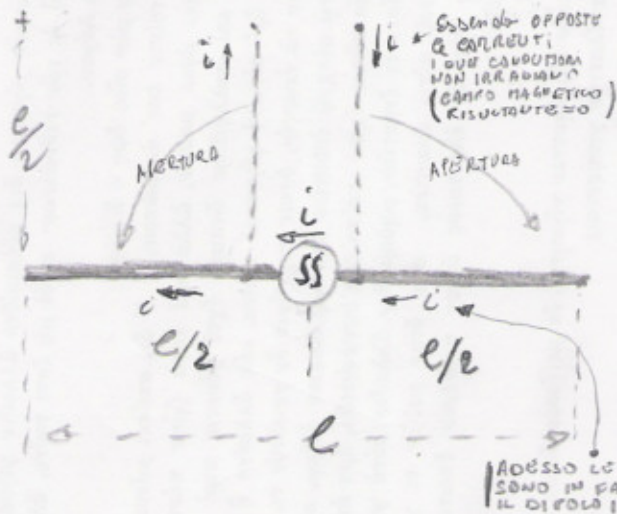 +
i
i
ESSENDO OPPOSTE
LE CORRENTI
I DUE CONDUTTORI
NON IRRADIANO
(CAMPO MAGNETICO
RISULTANTE=0)
l/2
APERTURA
APERTURA
i
i
i
l/2
l/2
l
ADESSO LE
SONO IN FA
IL DIPOLO I